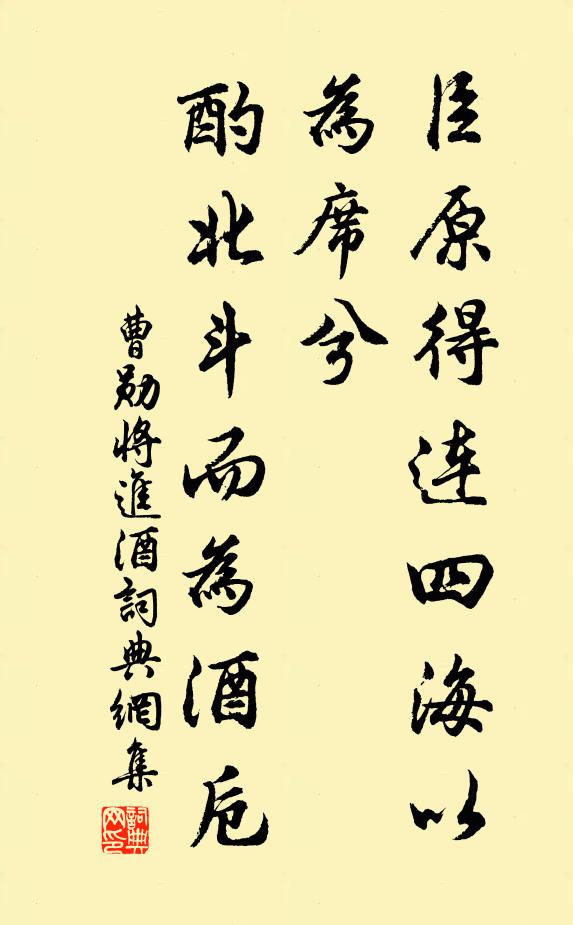 臣原得連四海以
為席兮
酌北斗而為酒卮
曹勛將進酒詞典網集
詞典网印